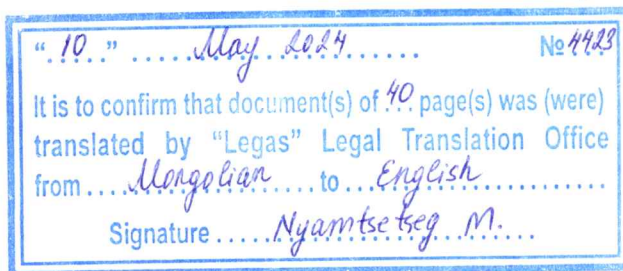 “.10..” .....May 2024....... №4423
It is to confirm that document(s) of 40 page(s) was (were)
translated by “Legas” Legal Translation Office
from ....Mongolian.......to ...English.........
Signature .....Nyamtsetseg M.....